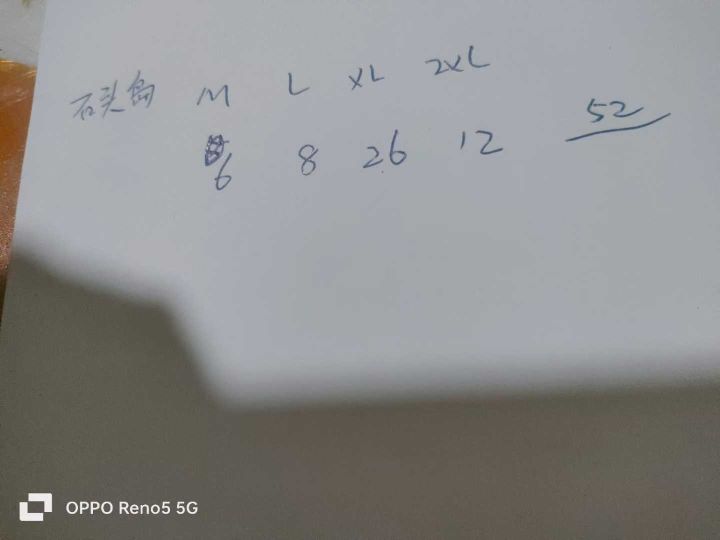 石头岛 M L XL 2XL
6 8 26 12 52
OPPO Reno5 5G